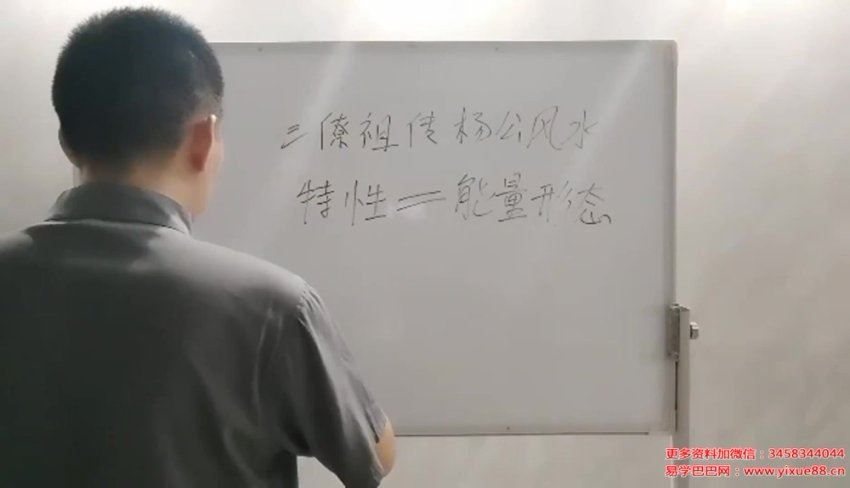 三僚祖传杨公风水
特性=能量形态
更多资料加微信：3458344044
易学巴巴网：www.yixue88.cn